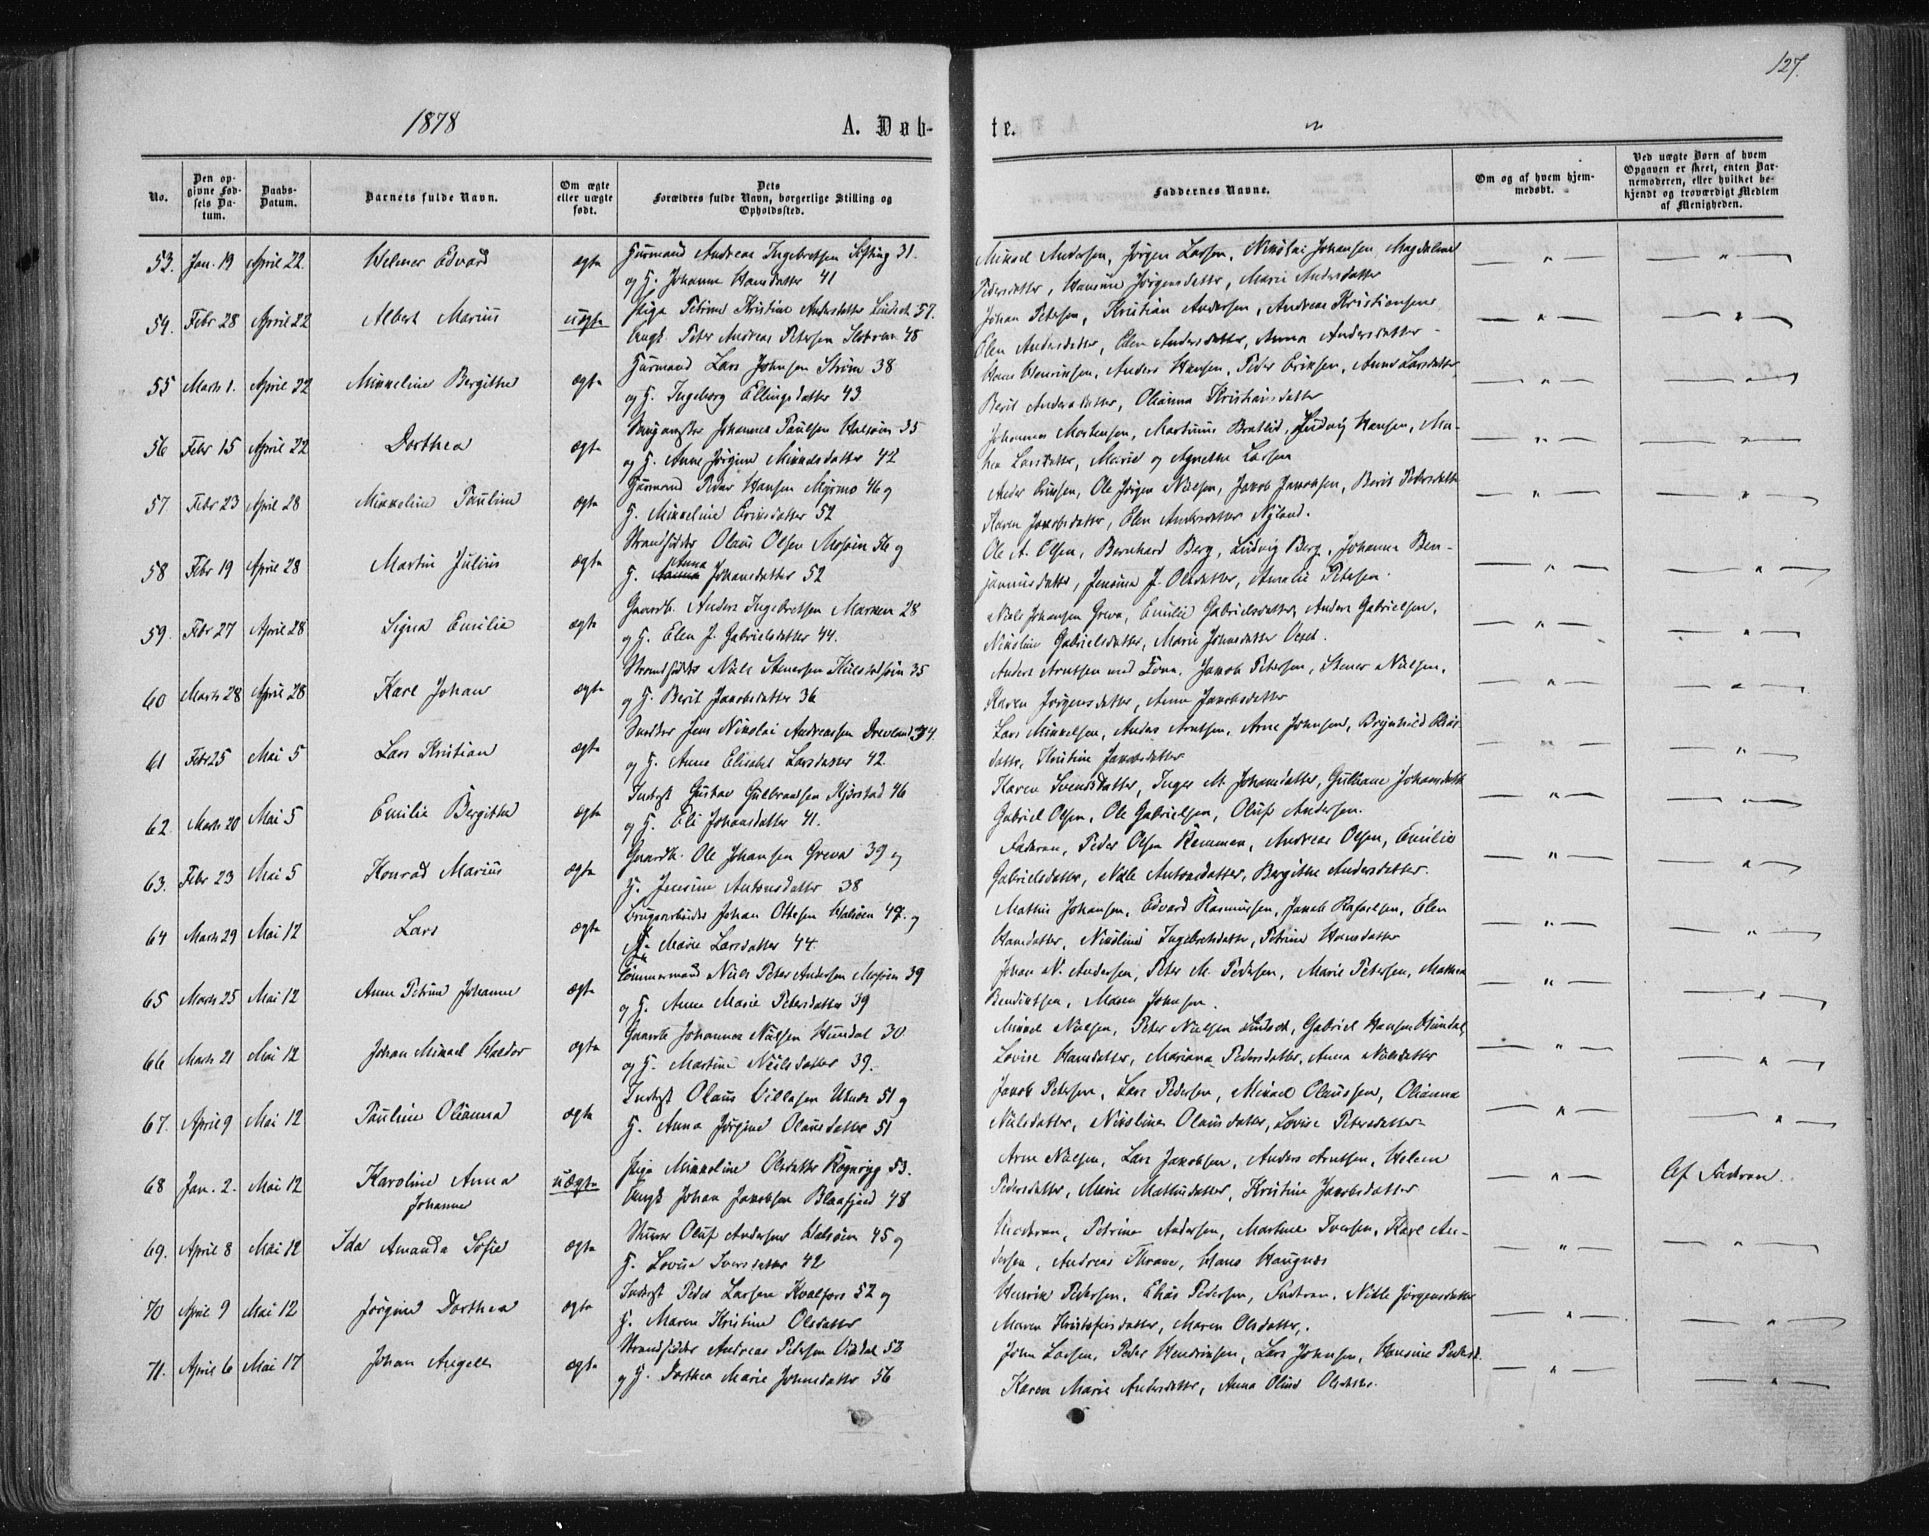 127.
1878
A. Døb-
te.
No.
Den op-
givne Fød-
sels Da-
tum.
Daabs-
Datum.
Barnets fulde Navn.
Om ægte
eller uægte
født.
Dets
Forældres fulde Navn, borgerlige Stilling og
Opholdssted.
Faddernes Navne.
Om og af hvem hjem-
medøbt.
Ved uægte Børn af hvem
Opgaven er skeet, enten Bar-
nemoderen, eller hvilket be-
kjendt og troværdigt Medlem
af Menigheden.
53. Jan. 19 April 22 Helmer Edvard ægte Huusmand Andreas Ingebretsen 31.
og H. Johanne Hansdatter 41
Mikael Andersen, Jörgen Larsen, Nikolai Johansen, Magdalena
Pedersdatter, Hansine Jörgensdatter, Marie Andersdatter
54. Febr 28 April 22 Albert Marius uægte Pige Petrine Kristine Andersdatter 57.
Ungk. Peter Andreas Petersen 48
Johan Petersen, Kristian Andersen, Andreas Kristiansen
Elen Andersdatter, Elen Andersdatter, Anna Andersdatter
55 Marts 1. April 22 Mikkeline Bergitha ægte Huusmand Lars Johnsen Strøm 38
og H. Ingeborg Ellingsdatter 43
Hans Henriksen, Anders Hansen, Peder Eriksen, Anne Larsdatter
Berit Andersdatter, Olianna Kristiansdatter
56 Febr 15 April 22 Dorthea ægte Johannes Paulsen Halsøen 35
og H. Anne Jörgine Mikkelsdatter 42
Johannes Mortensen, Martinus Bratlid, Ludvig Hansen, Ma-
Larsdatter, Marie og Agnethe Larsen
57 Febr 23 April 28 Mikkeline Pauline ægte Huusmand Peder Hansen Myrmo 46 og
H. Mikkeline Eriksdatter 52
Ole Jörgen Nielsen, Jakob Jakobsen, Berit Pedersdatter
Karen Jakobsdatter, Elen Andersdatter Nyland.
58 Febr 19 April 28 Martin Julius ægte Strandsidder Olaus Olsen Mosjøen 56 og
H. Anna Johansdatter 52
Ole A. Olsen, Bernhard Berg, Ludvig Berg, Johanna Ben-
jaminsdatter, Jensine J. Olsdatter, Amalie Petersen.
59. Febr 27 April 28 Signe Emilie ægte Gaardb. Anders Ingebretsen Marken 28
og H. Elen J. Gabrielsdatter 44.
Niels Johansen Greva, Emilie Gabrielsdatter, Anders Gabrielsen,
Nikoline Gabrielsdatter, Marie Johnsdatter
60 Marts 28 April 28 Karl Johan ægte Strandsidder Niels Stenersen 35
og H. Berit Jakobsdatter 36
Anders Arntsen med Kona, Jakob Petersen, Stener Nielsen,
Karen Jörgensdatter, Anne Jakobsdatter
61 Febr 25 Mai 5 Lars Kristian ægte Jens Nikolai Andreassen Drevland 34.
og H. Anne Elisabet Larsdatter 42
Lars Mikkelsen, Anders Arntsen, Arne Johnsen, Brynhild
datter, Kristine Jakobsdatter
62. Marts 20 Mai 5 Emilie Bergitha ægte Inderst Gustav Gulbrandsen Kjørstad 46
og H. Eli Johansdatter 41.
Karen Svendsdatter, Inger M. Johansdatter, Johansdatter
Gabriel Olsen, Ole Gabrielsen, Oluf Andersen.
63. Febr 23 Mai 5 Konrad Marius ægte Gaardb. Ole Johansen Greva 39 og
H. Jensine Antonsdatter 38
Faderen, Peder Olsen Remmen, Andreas Olsen, Emilie
Gabrielsdatter, Antonsdatter, Bergithe Andersdatter.
64 Marts 29 Mai 12 Lars ægte Brugsarbeider Johan Ottesen Halsøen 47. og
H. Marie Larsdatter 44.
Mathis Johansen, Edvard Rasmussen, Jakob Rafaelsen, Elen
Hansdatter, Nikoline Ingebretsdatter, Petrine Hansdatter
65 Marts 25 Mai 12 Anne Petrine Johanne ægte Tømmermand Niels Peter Andersen Mosjøen 39
og H. Anne Marie Petersdatter 39
Johan N. Andersen, Peter M. Pedersen, Marie Petersen,
Bendiktsen, Maren Johnsen.
66 Marts 21 Mai 12 Johan Mikael Haldor ægte Gaardb Johannes Nielsen Hundal 30
og H. Martine Nielsdatter 39.
Mikkel Nielsen, Peter Nielsen, Gabriel Hansen Hundal
Lovise Hansdatter, Mariana Pedersdatter, Anna Nielsdatter
67. April 9 Mai 12 Pauline Olianna ægte Inderst Olaus Utnes 51 og
H. Anna Jörgine Olausdatter 51
Jakob Petersen, Lars Pedersen, Mikael Olaussen, Olianna
Nielsdatter, Nikoline Olausdatter, Lovise Petersdatter
68 Jan. 2. Mai 12 Karoline Anna
Johanne
uægte Pige Mikkeline Olsdatter 53.
Ungk Johan Jakobsen Blaafjeld 48
Arne Nielsen, Lars Jakobsen, Anders Arntsen, Helene
Pedersdatter, Marie Mathisdatter, Kristine Jakobsdatter
Af Faderen.
69. April 8 Mai 12 Ida Amanda Sofie ægte Oluf Andersen Halsøen 45 og
H. Lovise Iversdatter 42
Moderen, Petrine Andersen, Martine Iversen, Karl An-
dersen, Andreas Thrane, Hans
70 April 9 Mai 12 Jørgine Dorthea ægte Inderst Peder Larsen Kvalfors 52 og
H. Maren Kristine Olsdatter
Henrik Pedersen, Elias Pedersen, Faderen, Jörgensdatter
Maren Kristofersdatter, Maren Olsdatter.
71. April 6 Mai 17 Johan Angell ægte Strandsidder Andreas Pedersen 52
og H. Dorthea Marie Johnsdatter 56
John Larsen, Peder Hendriksen, Lars Johnsen, Hansine Pedersd.
Karen Marie Andersdatter, Anna Olsdatter.